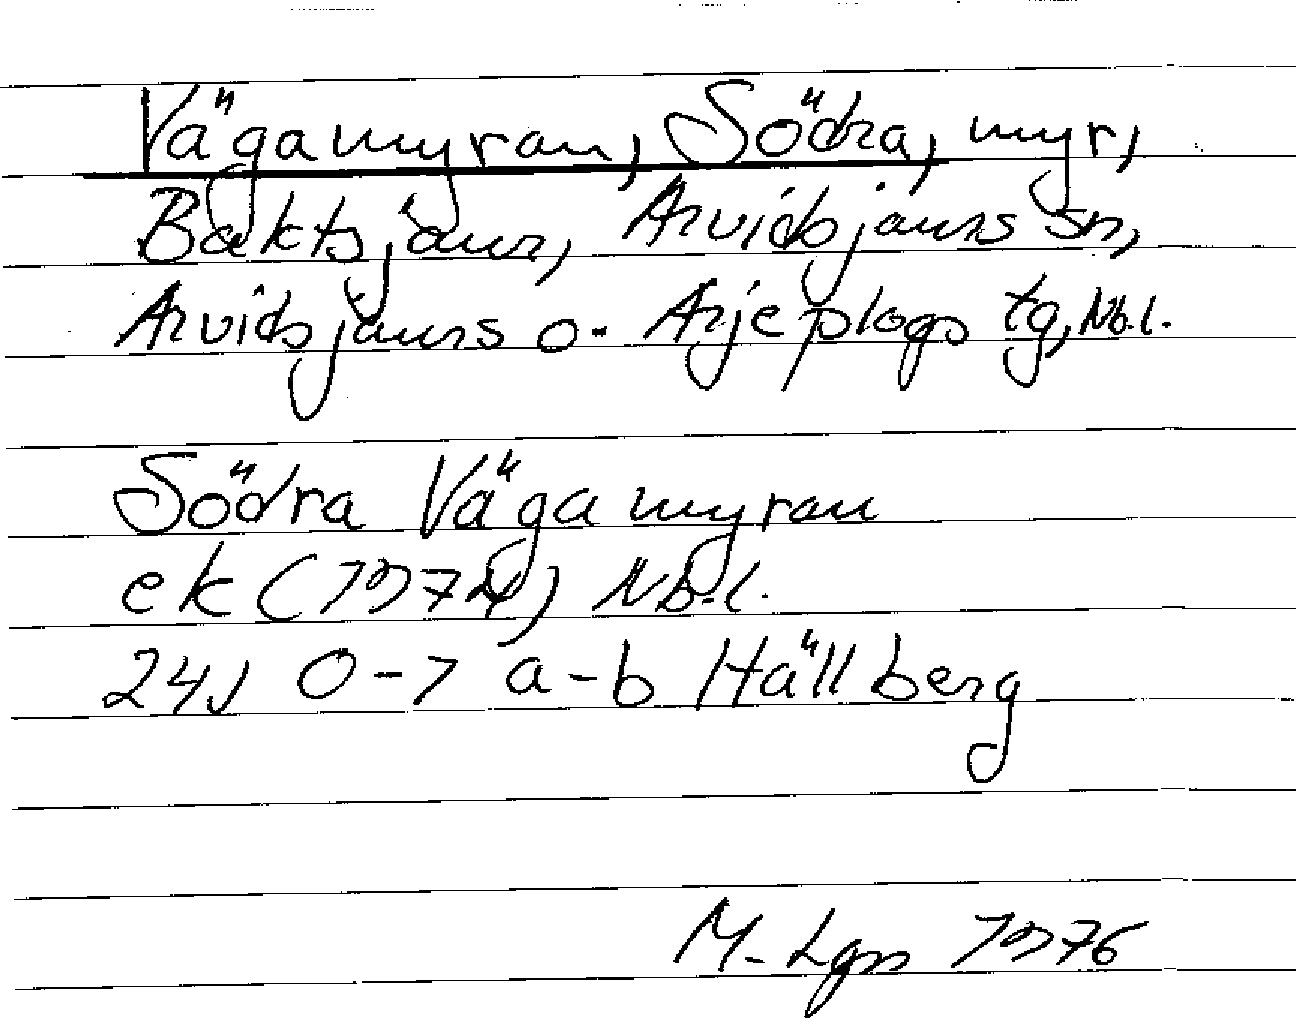 Vägamyran, Södra, myr,
Baktsjaur, Arvidsjaurs sn,
Arvidsjaurs o. Arjeplogs tg, Nb.l.
Södra Vägamyran
ek (1974) Nb.l.
24J 0-1 a-b Hällberg
M. Lgn 1976